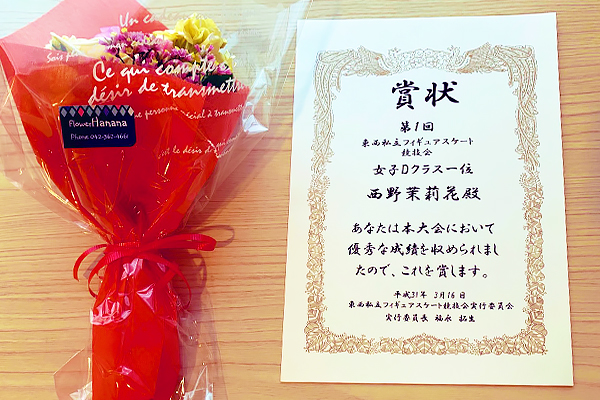 Ce qui compte
désir de transmettre
Flower Hanana
Phone 042-362-4661
賞状
第1回
東西私立フィギュアスケート
競技会
女子Dクラス一位
西野茉莉花殿
あなたは本大会において
優秀な成績を収められまし
たので、これを賞します。
平成31年 3月16日
東西私立フィギュアスケート競技会実行委員会
実行委員長 福永 拓生